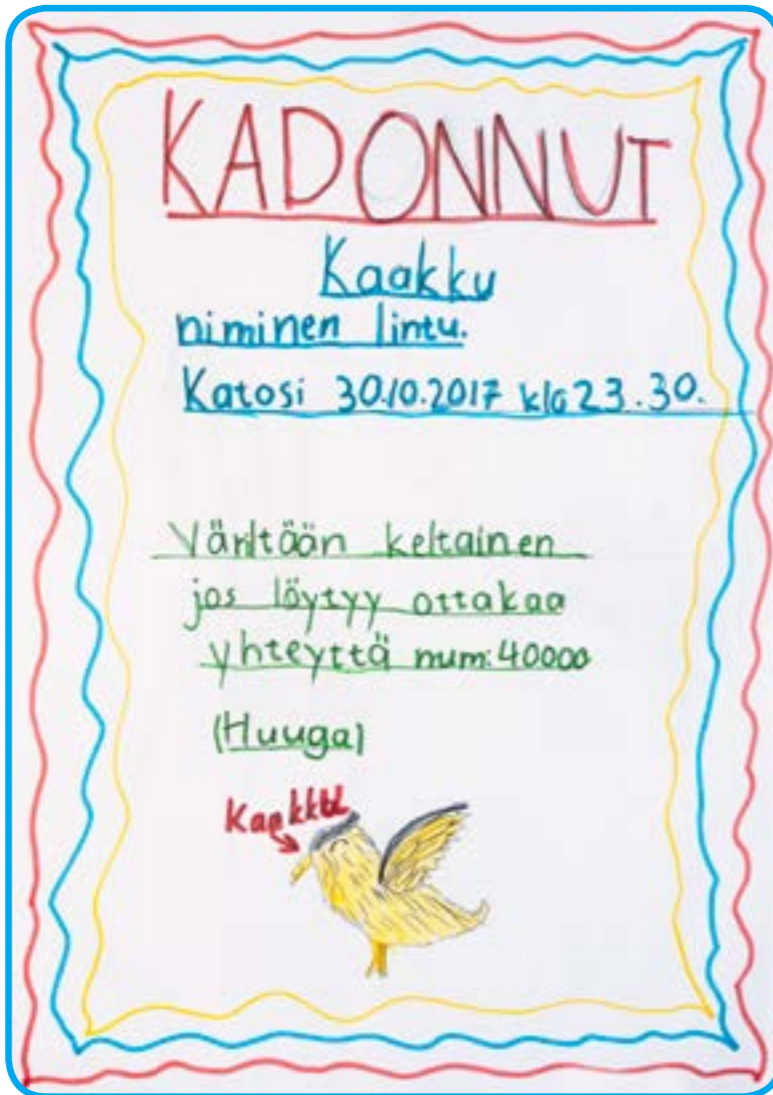 KADONNUT
Kaakku
niminen lintu.
Katosi 30.10.2017 klo 23.30.
Väriltään keltainen
jos löytyy ottakaa
yhteyttä num:40000
(Huuga)
Kaakku